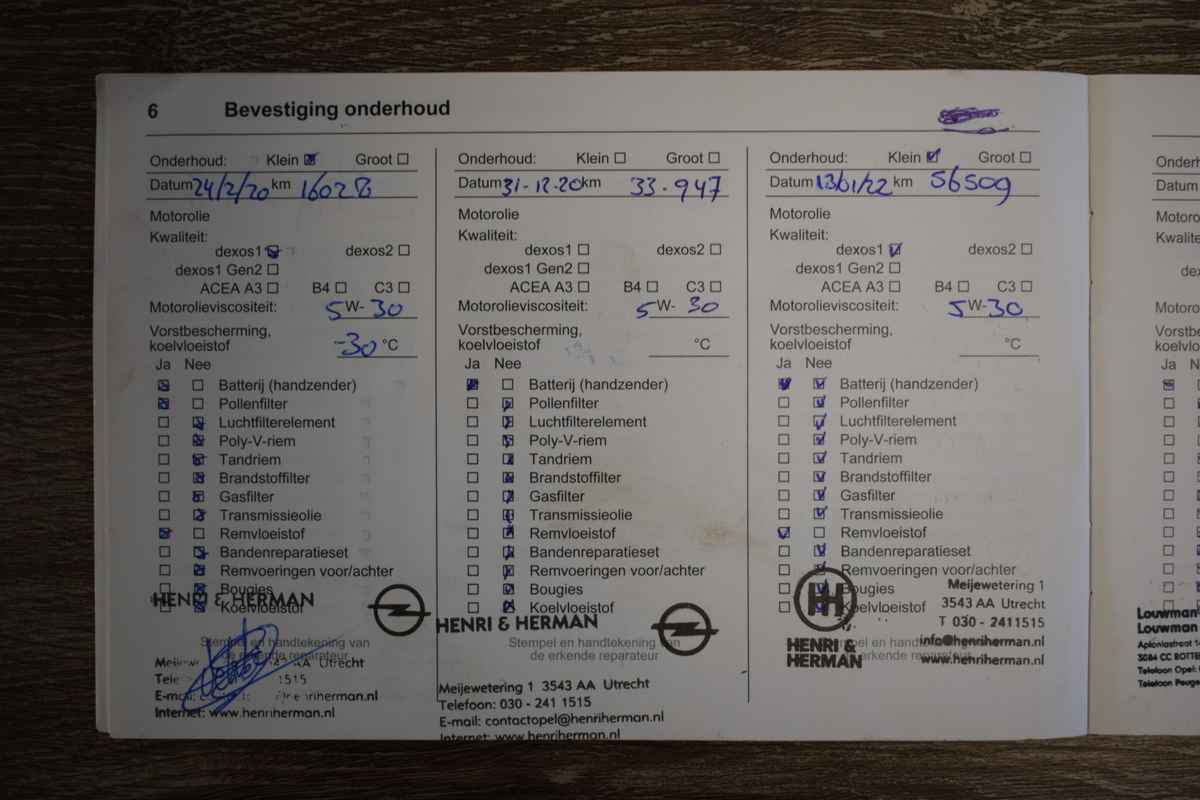 6 Bevestiging onderhoud
Onderhoud: Klein Groot
Datum 24/2/20 km 16028
Motorolie
Kwaliteit:
dexos1 dexos2
dexos1 Gen2
ACEA A3 B4 C3
Motorolieviscositeit: 5 W- 30
Vorstbescherming,
koelvloeistof -30 °C
Ja Nee
Batterij (handzender)
Pollenfilter
Luchtfilterelement
Poly-V-riem
Tandriem
Brandstoffilter
Gasfilter
Transmissieolie
Remvloeistof
Bandenreparatieset
Remvoeringen voor/achter
Bougies
Koelvloeistof
HENRI & HERMAN
Stempel en handtekening van
de erkende reparateur
AA Utrecht
1515
henriherman.nl
Internet: www.henriherman.nl
Onderhoud: Klein Groot
Datum 31-12-20 km 33.947
Motorolie
Kwaliteit:
dexos1 dexos2
dexos1 Gen2
ACEA A3 B4 C3
Motorolieviscositeit: 5 W- 30
Vorstbescherming,
koelvloeistof °C
Ja Nee
Batterij (handzender)
Pollenfilter
Luchtfilterelement
Poly-V-riem
Tandriem
Brandstoffilter
Gasfilter
Transmissieolie
Remvloeistof
Bandenreparatieset
Remvoeringen voor/achter
Bougies
Koelvloeistof
HENRI & HERMAN
Stempel en handtekening van
de erkende reparateur
Meijewetering 1 3543 AA Utrecht
Telefoon: 030 - 241 1515
E-mail: contactopel@henriherman.nl
Internet: www.henriherman.nl
Onderhoud: Klein Groot
Datum 13/01/22 km 56509
Motorolie
Kwaliteit:
dexos1 dexos2
dexos1 Gen2
ACEA A3 B4 C3
Motorolieviscositeit: 5 W- 30
Vorstbescherming,
koelvloeistof °C
Ja Nee
Batterij (handzender)
Pollenfilter
Luchtfilterelement
Poly-V-riem
Tandriem
Brandstoffilter
Gasfilter
Transmissieolie
Remvloeistof
Bandenreparatieset
Remvoeringen voor/achter
Bougies
Koelvloeistof
HENRI &
HERMAN
Meijewetering 1
3543 AA Utrecht
T 030 - 2411515
info@henriherman.nl
www.henriherman.nl
Datum
Ja
Louwman
Louwman
Telefoon Opel: